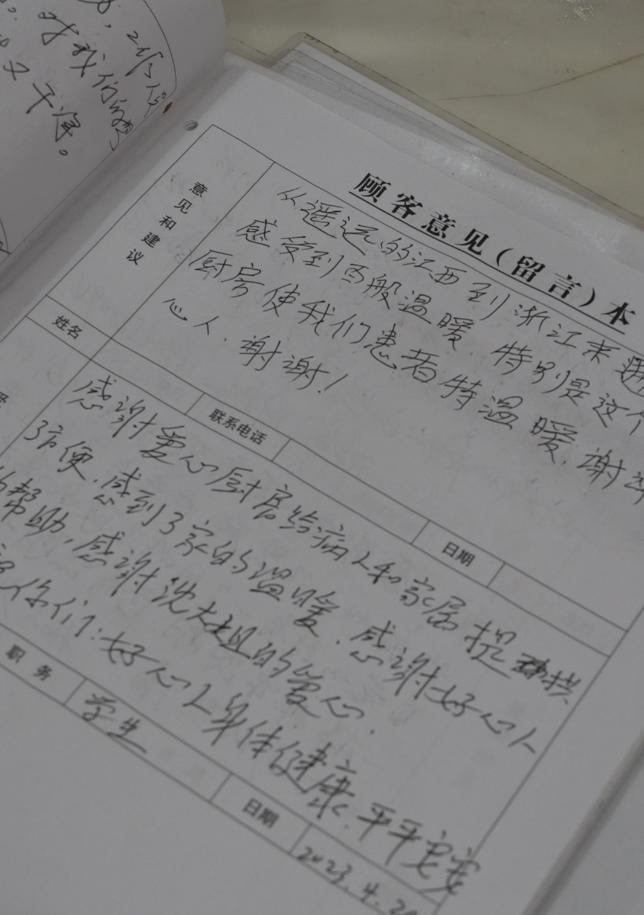 对我们的
又干净。
顾客意见(留言)本
意见和建议
从遥远的江西到浙江来
感受到百般温暖,特别是这个
厨房使我们患者特温暖,谢
心人,谢谢!
姓名
联系电话
日期
感谢爱心厨房给病人和家属提
方便,感到了家的温暖,感谢好心人
帮助,感谢沈大姐的爱心,
你们:好心人身体健康,平平安安
职务
学生
日期
2023.4.2